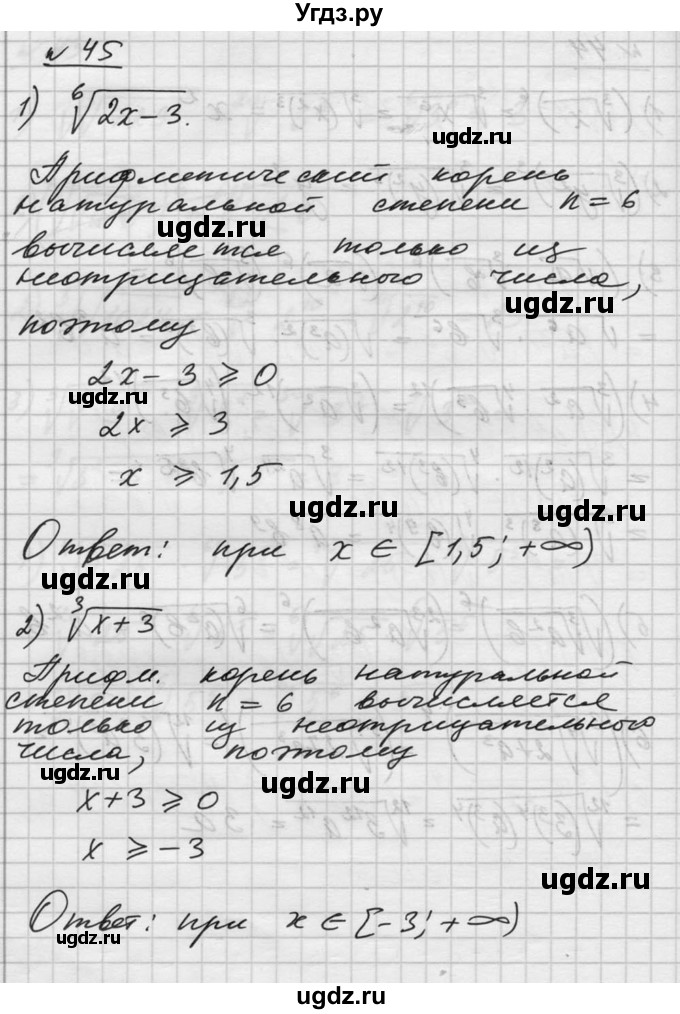 Угдз.ру
№ 45
1) ⁶√(2x−3).
ugdz.ru
Арифметический корень
натуральной степени n = 6
ugdz.ru
вычисляется только из
неотрицательного числа,
ugdz.ru
поэтому
2x − 3 ⩾ 0
ugdz.ru
2x ⩾ 3
x ⩾ 1,5
ugdz.ru
Ответ: при x ∈ [1,5; +∞)
ugdz.ru
2) ³√(x+3)
ugdz.ru
Арифм. корень натуральной
степени n = 6 вычисляется
только из неотрицательного
числа, поэтому
ugdz.ru
ugdz.ru
x+3 ⩾ 0
x ⩾ −3
ugdz.ru
Ответ: при x ∈ [−3; +∞)
ugdz.ru
ugdz.ru
ugdz.ru